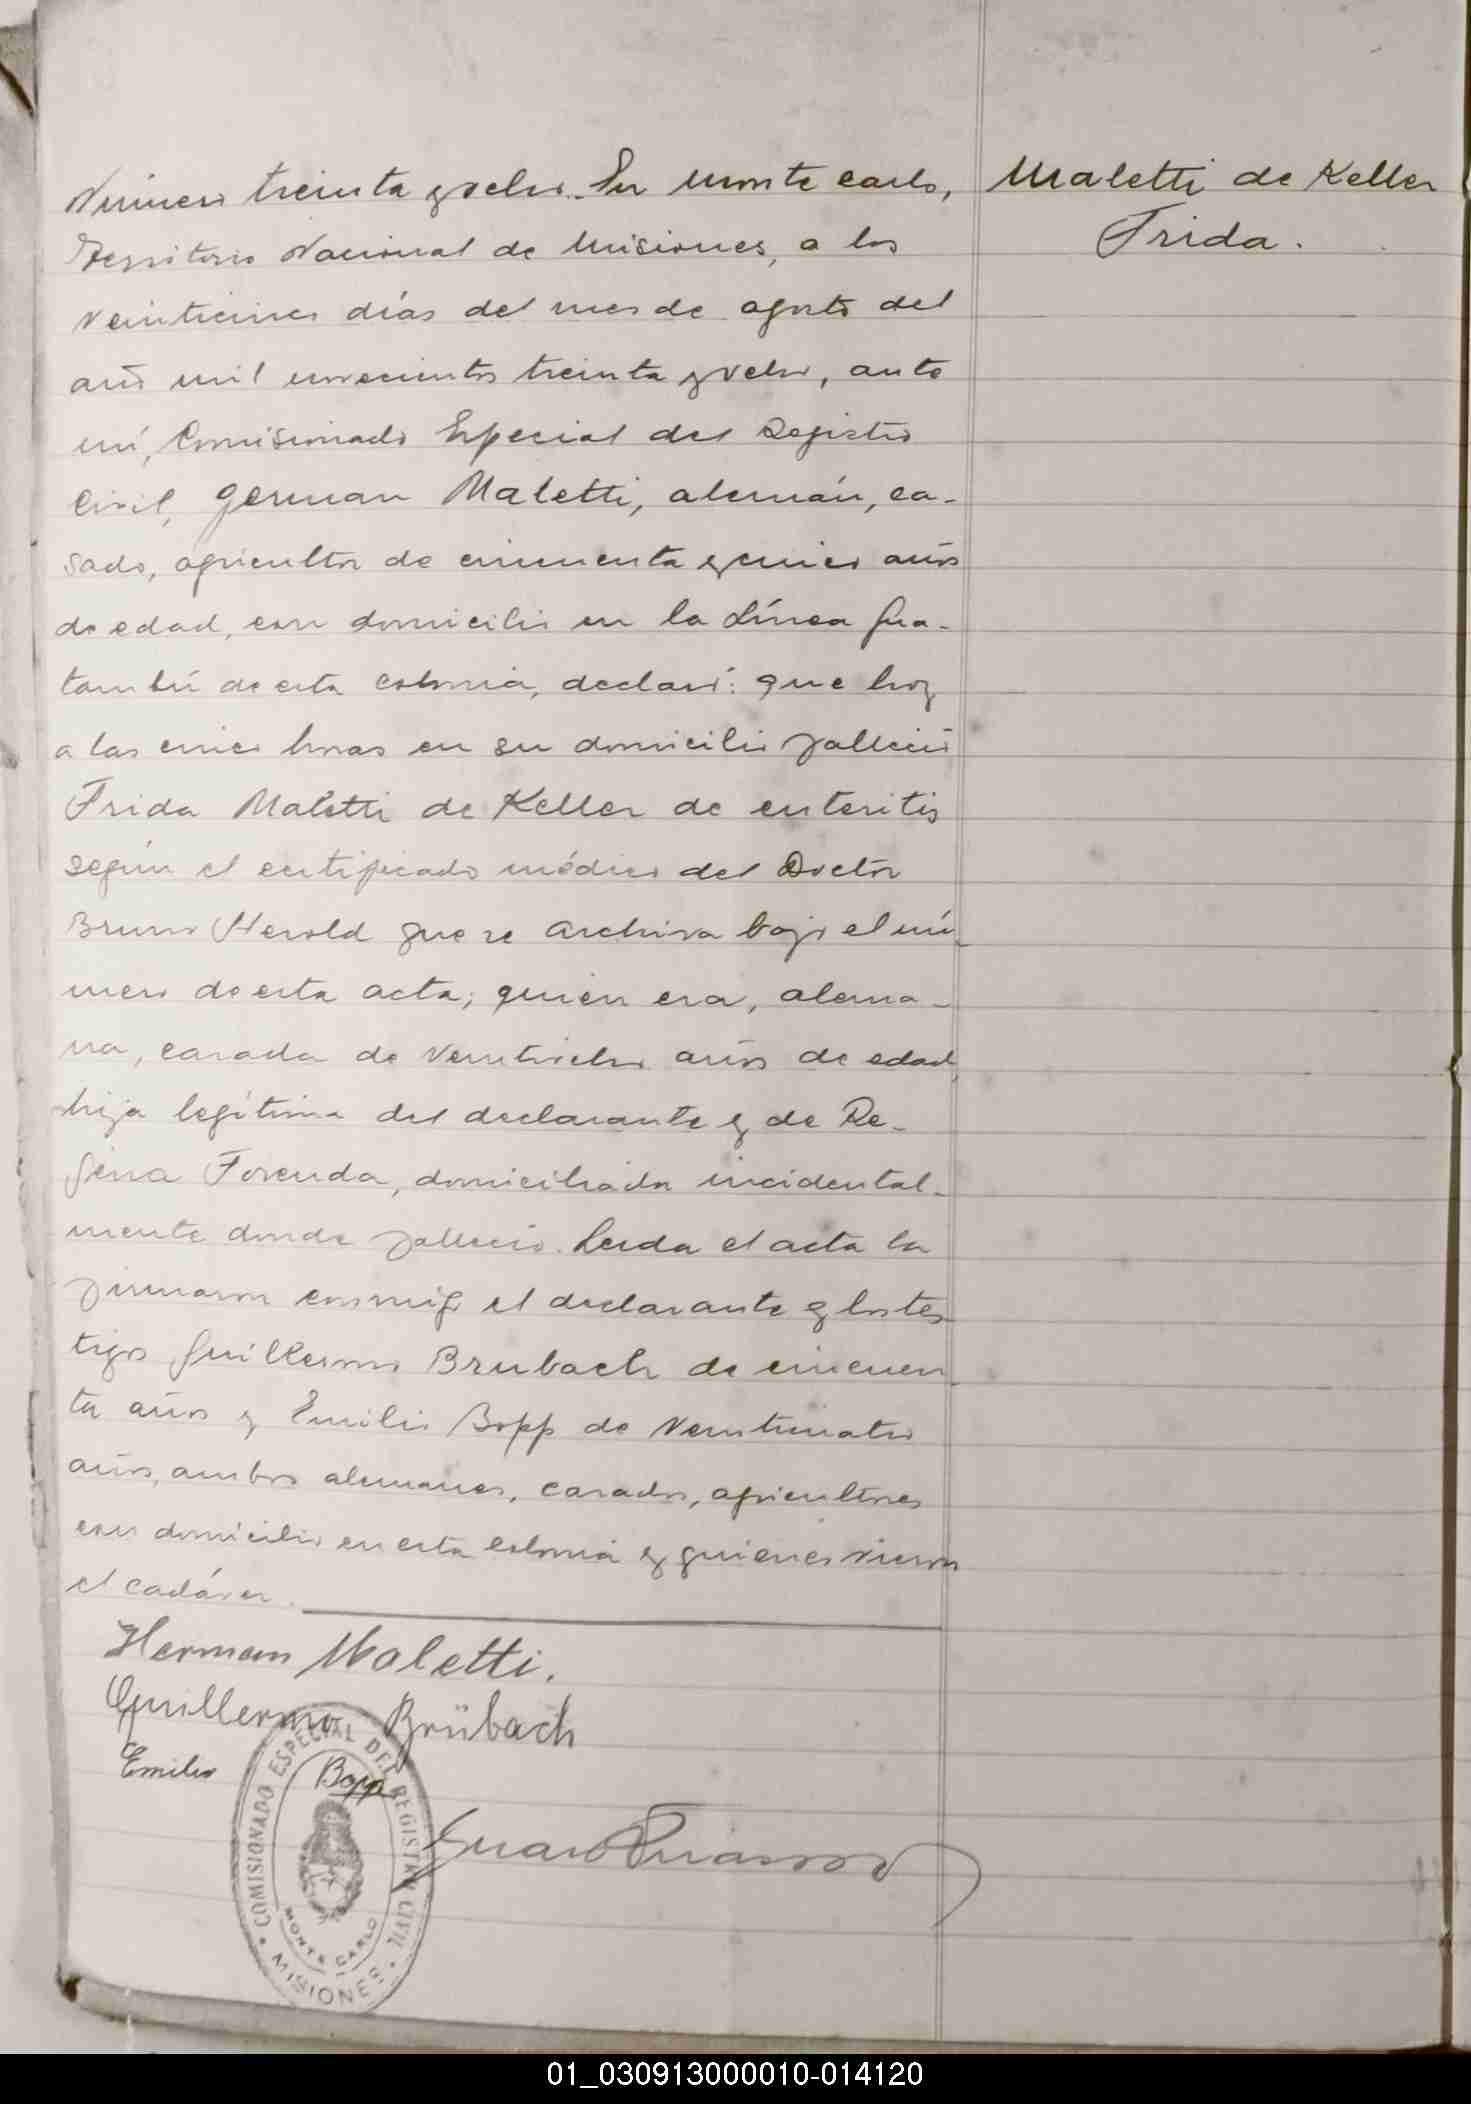 Número treinta y ocho. En Monte Carlo,
Territorio Nacional de Misiones, a los
veinticinco días del mes de agosto del
año mil novecientos treinta y ocho, ante
mí, Comisionado Especial del Registro
Civil, German Maletti, alemán, ca-
sado, agricultor de cincuenta y cinco años
de edad, con domicilio en la Línea Gua-
tambú de esta colonia, declaró: que hoy
a las cinco horas en su domicilio falleció
Frida Maletti de Keller de enteritis
según el certificado médico del Doctor
Bruno Herold que se archiva bajo el nú-
mero de esta acta; quien era, alema-
na, casada de veintiocho años de edad,
hija legítima del declarante y de Re-
gina Forenda, domiciliada incidental-
mente donde falleció. Leida el acta la
firmaron conmigo el declarante y los tes-
tigos Guillermo Brubach de cincuen-
ta años y Emilio Bopp de veinticuatro
años, ambos alemanes, casados, agricultores
con domicilio en esta colonia y quienes vieron
el cadáver.
Herman Maletti.
Guillermo Brübach
Emilio Bopp
COMISIONADO ESPECIAL DEL REGISTRO CIVIL
MONTE CARLO
MISIONES
Maletti de Keller
Frida.
01_030913000010-014120